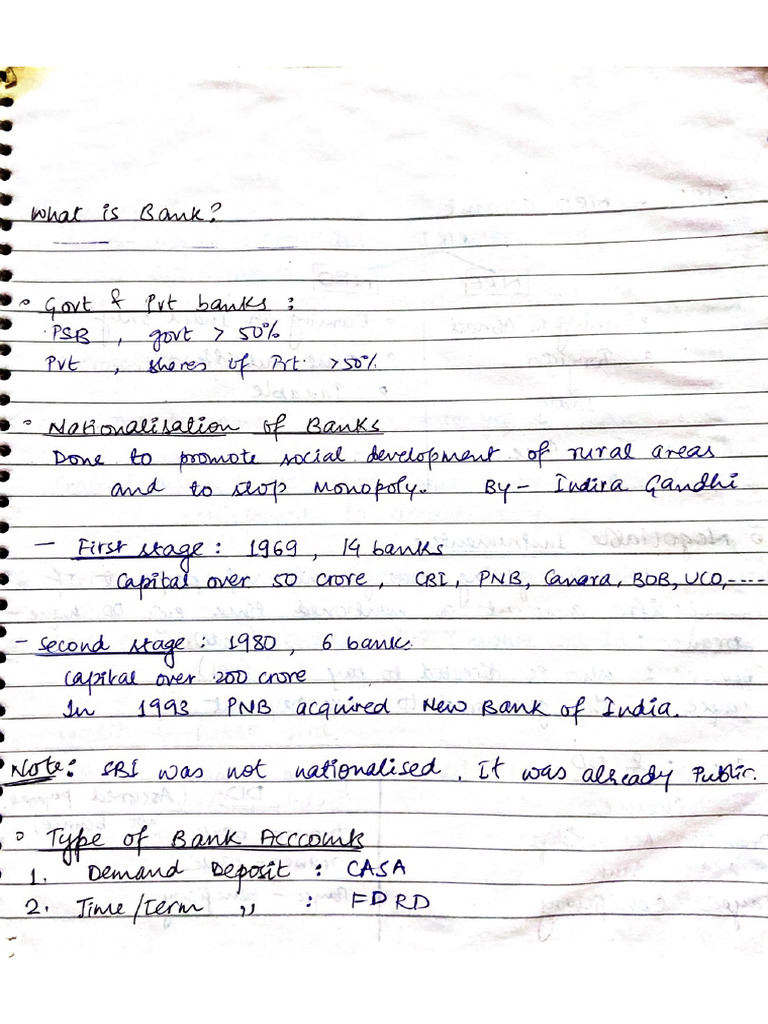 What is Bank?
◦ Govt & Pvt banks :
PSB , govt > 50%
Pvt , shares of Pvt. >50%
◦ Nationalisation of Banks
Done to promote social development of rural areas
and to stop Monopoly. By – Indira Gandhi
– First stage : 1969 , 14 banks
Capital over 50 crore , CBI , PNB, Canara, BOB, UCO,----
– Second stage : 1980 , 6 banks
Capital over 200 crore
In 1993 PNB acquired New Bank of India.
Note: SBI was not nationalised. It was already Public.
◦ Type of Bank Acccounts
1. Demand Deposit : CASA
2. Time/Term ,, : FD RD